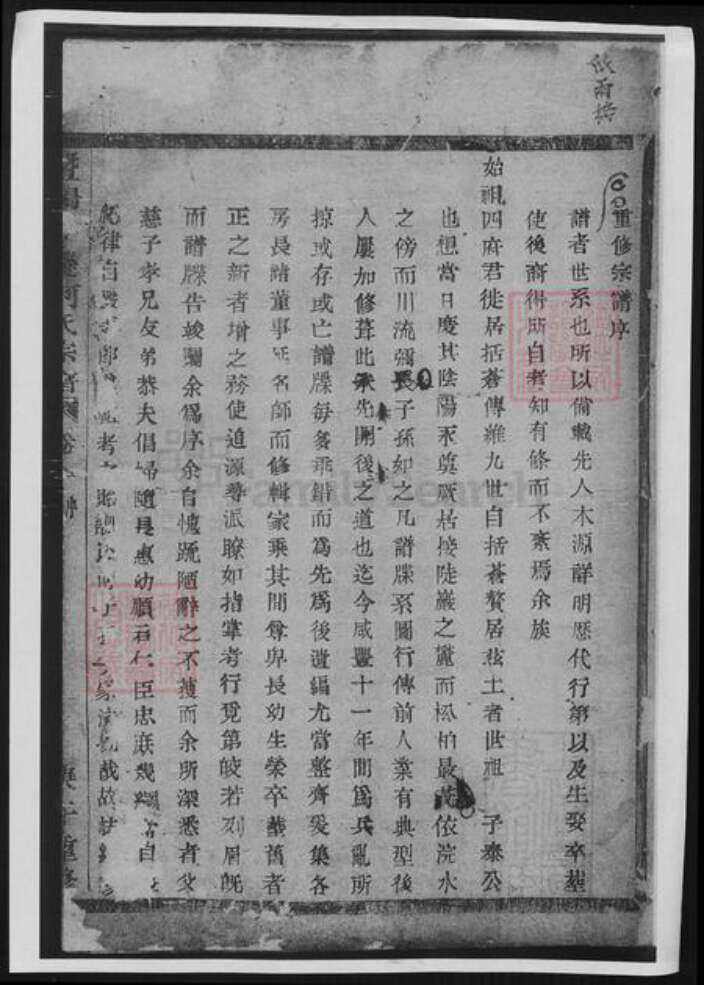 重修宗譜序
譜者世系也所以備載先人木源詳明歷代行第以及生娶卒塟
使後裔得所自考知有條而不紊焉余族
始祖四府君徙居括蒼傳維九世自括蒼贅居玆土者世祖 子泰公
也想當日度其陰陽永奠厥居接陡巖之黨而松柏最茂依浣水
之傍而川流彌長子孫如之凡譜牒系圖行傳前人業有典型後
人屢加修葺此承先開後之道也迄今咸豐十一年間爲兵亂所
掠或存或亡譜牒每多乖錯而爲先爲後遺編尤當整齊爰集各
房長諸董事延名師而修輯家乘其間尊卑長幼生榮卒塟舊者
正之新者增之務使追源尋派瞭如指掌考行覓第皎若列眉旣
而譜牒告竣囑余爲序余自愧疏陋辭之不獲而余所深悉者父
慈子孝兄友弟恭夫倡婦隨長惠幼順君仁臣忠庶幾
紀律 考 哉故
何氏宗譜 卷
庚子重修